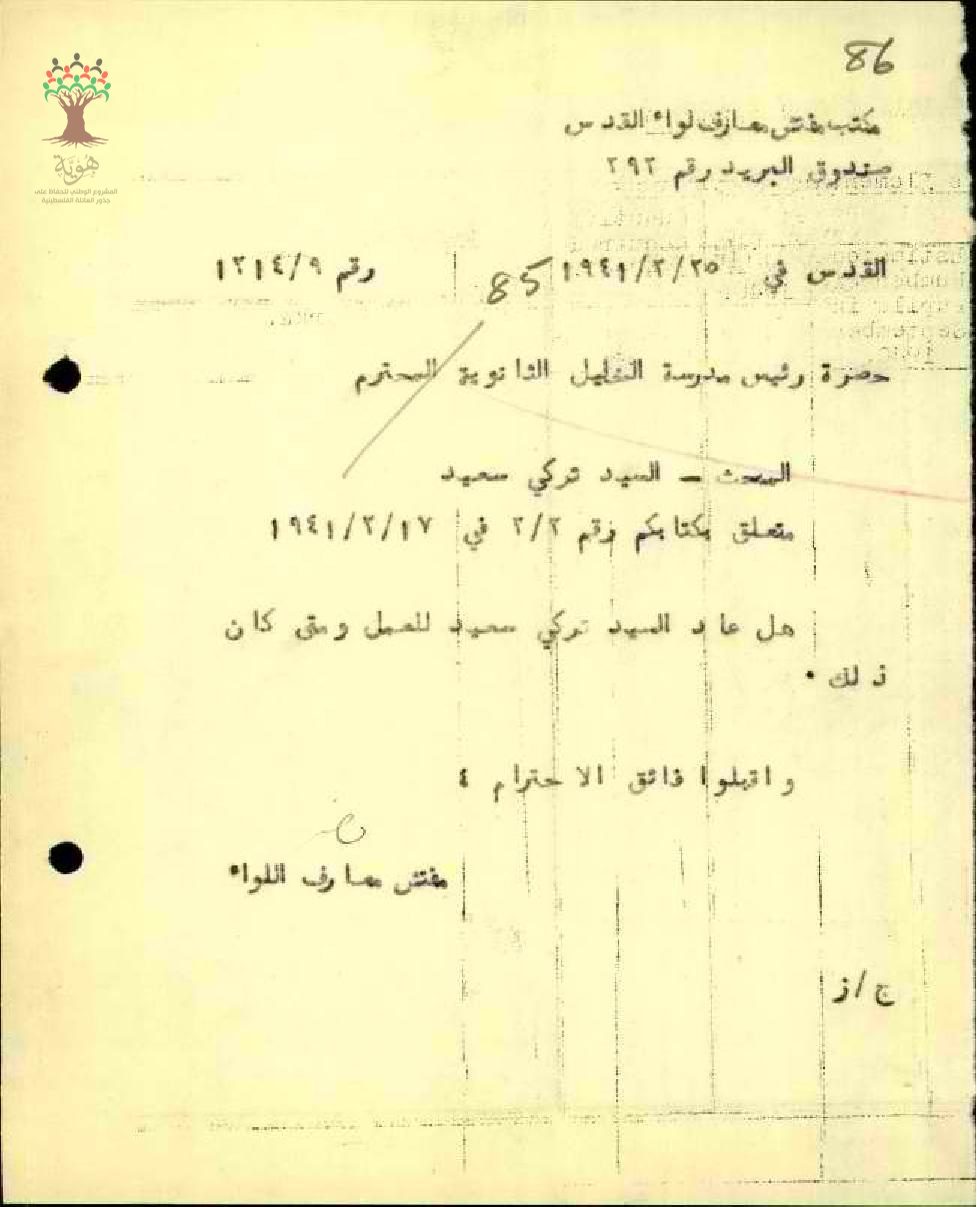 86
هوية
المشروع الوطني للحفاظ على
جذور العائلة الفلسطينية
مكتب مفتش معارف لواء القدس
صندوق البريد رقم ٢٩٢
القدس في ١٩٤١/٢/٢٥ رقم ١٢١٤/٩
85
حضرة رئيس مدرسة الخليل الثانوية المحترم
البحث – السيد تركي سعيد
متعلق بكتابكم رقم ٢/٢ في ١٩٤١/٢/١٧
هل عاد السيد تركي سعيد للعمل ومتى كان
ذلك .
واقبلوا فائق الاحترام ٤
مفتش معارف اللواء
ج/ز